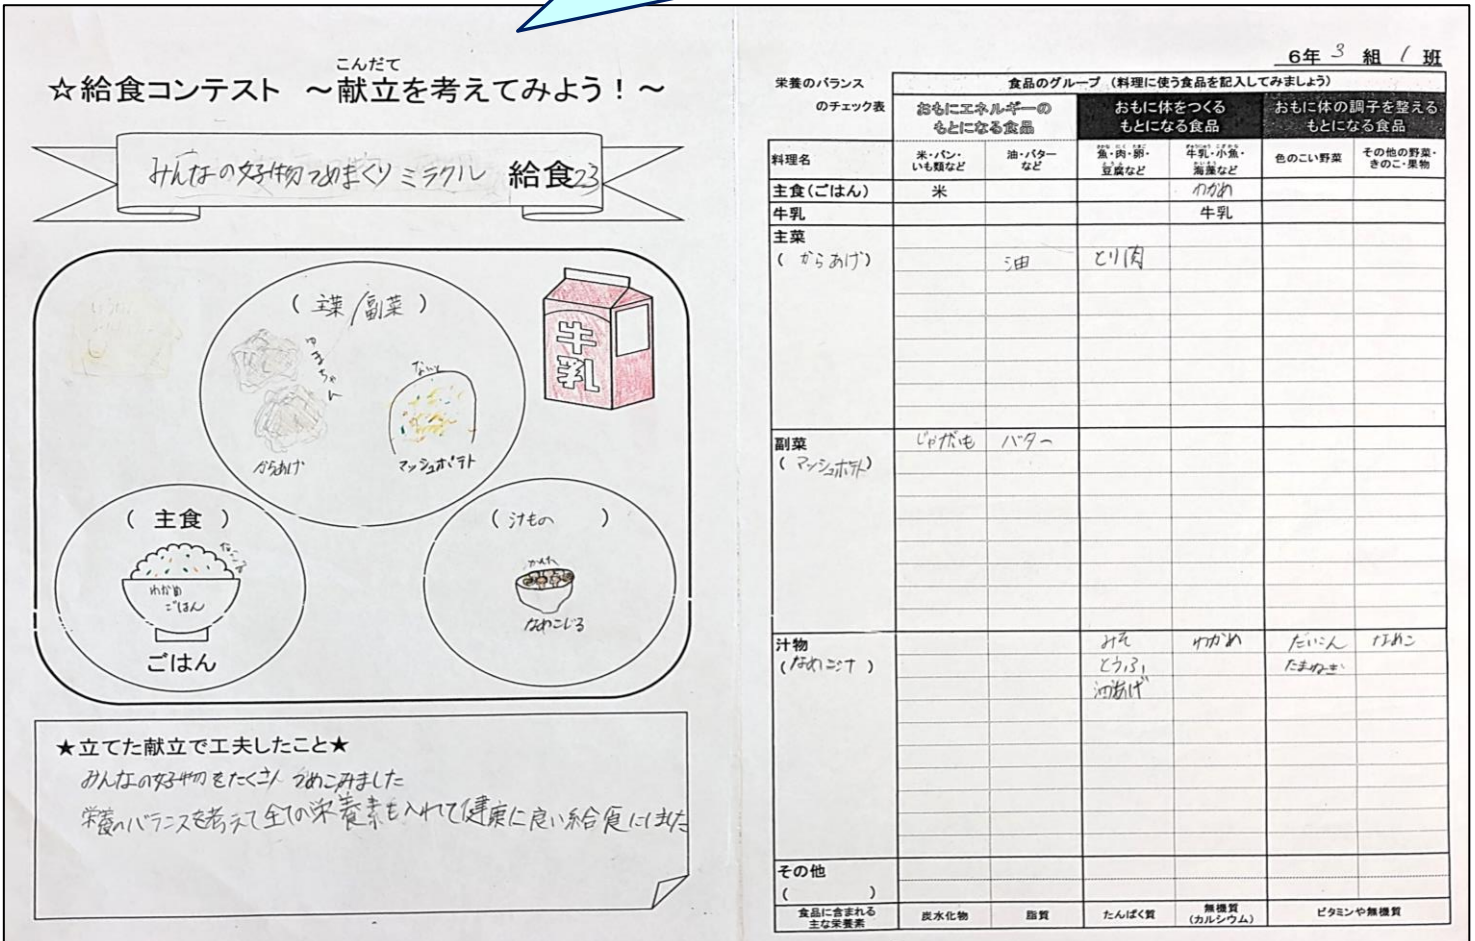 ☆給食コンテスト ～献立を考えてみよう！～
こんだて
みんなの好物つめまくりミラクル 給食23
(主菜/副菜)
ゆまちゃん
からあげ
マッシュポテト
牛乳
(主食)
わかめ
ごはん
ごはん
(汁もの)
なめこじる
★立てた献立で工夫したこと★
みんなの好物をたくさん つめこみました
栄養のバランスを考えて全ての栄養素も入れて健康に良い給食にしました
6年 3 組 1 班
栄養のバランス
のチェック表
食品のグループ（料理に使う食品を記入してみましょう）
おもにエネルギーの
もとになる食品
おもに体をつくる
もとになる食品
おもに体の調子を整える
もとになる食品
料理名
米・パン・
いも類など
油・バター
など
魚・肉・卵・
豆腐など
牛乳・小魚・
海藻など
色のこい野菜
その他の野菜・
きのこ・果物
主食(ごはん) 米 わかめ
牛乳 牛乳
主菜
(からあげ) 油 とり肉
副菜 じゃがいも バター
(マッシュポテト)
汁物 みそ わかめ だいこん なめこ
(なめこ汁) とうふ たまねぎ
油あげ
その他
( )
食品に含まれる
主な栄養素
炭水化物 脂質 たんぱく質 無機質
(カルシウム) ビタミンや無機質